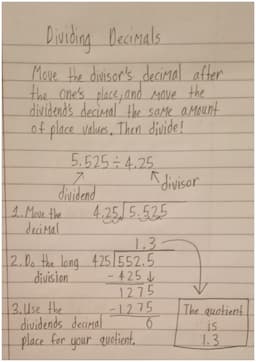 Dividing Decimals
Move the divisor's decimal after
the one's place, and move the
dividend's decimal the same amount
of place values. Then divide!
5.525 ÷ 4.25
dividend
divisor
1. Move the decimal
4.25 ⟌ 5.525
1.3
2. Do the long division
425 ⟌ 552.5
- 425 ↓
1275
3. Use the dividends decimal place for your quotient.
- 1275
0
The quotient
is
1.3